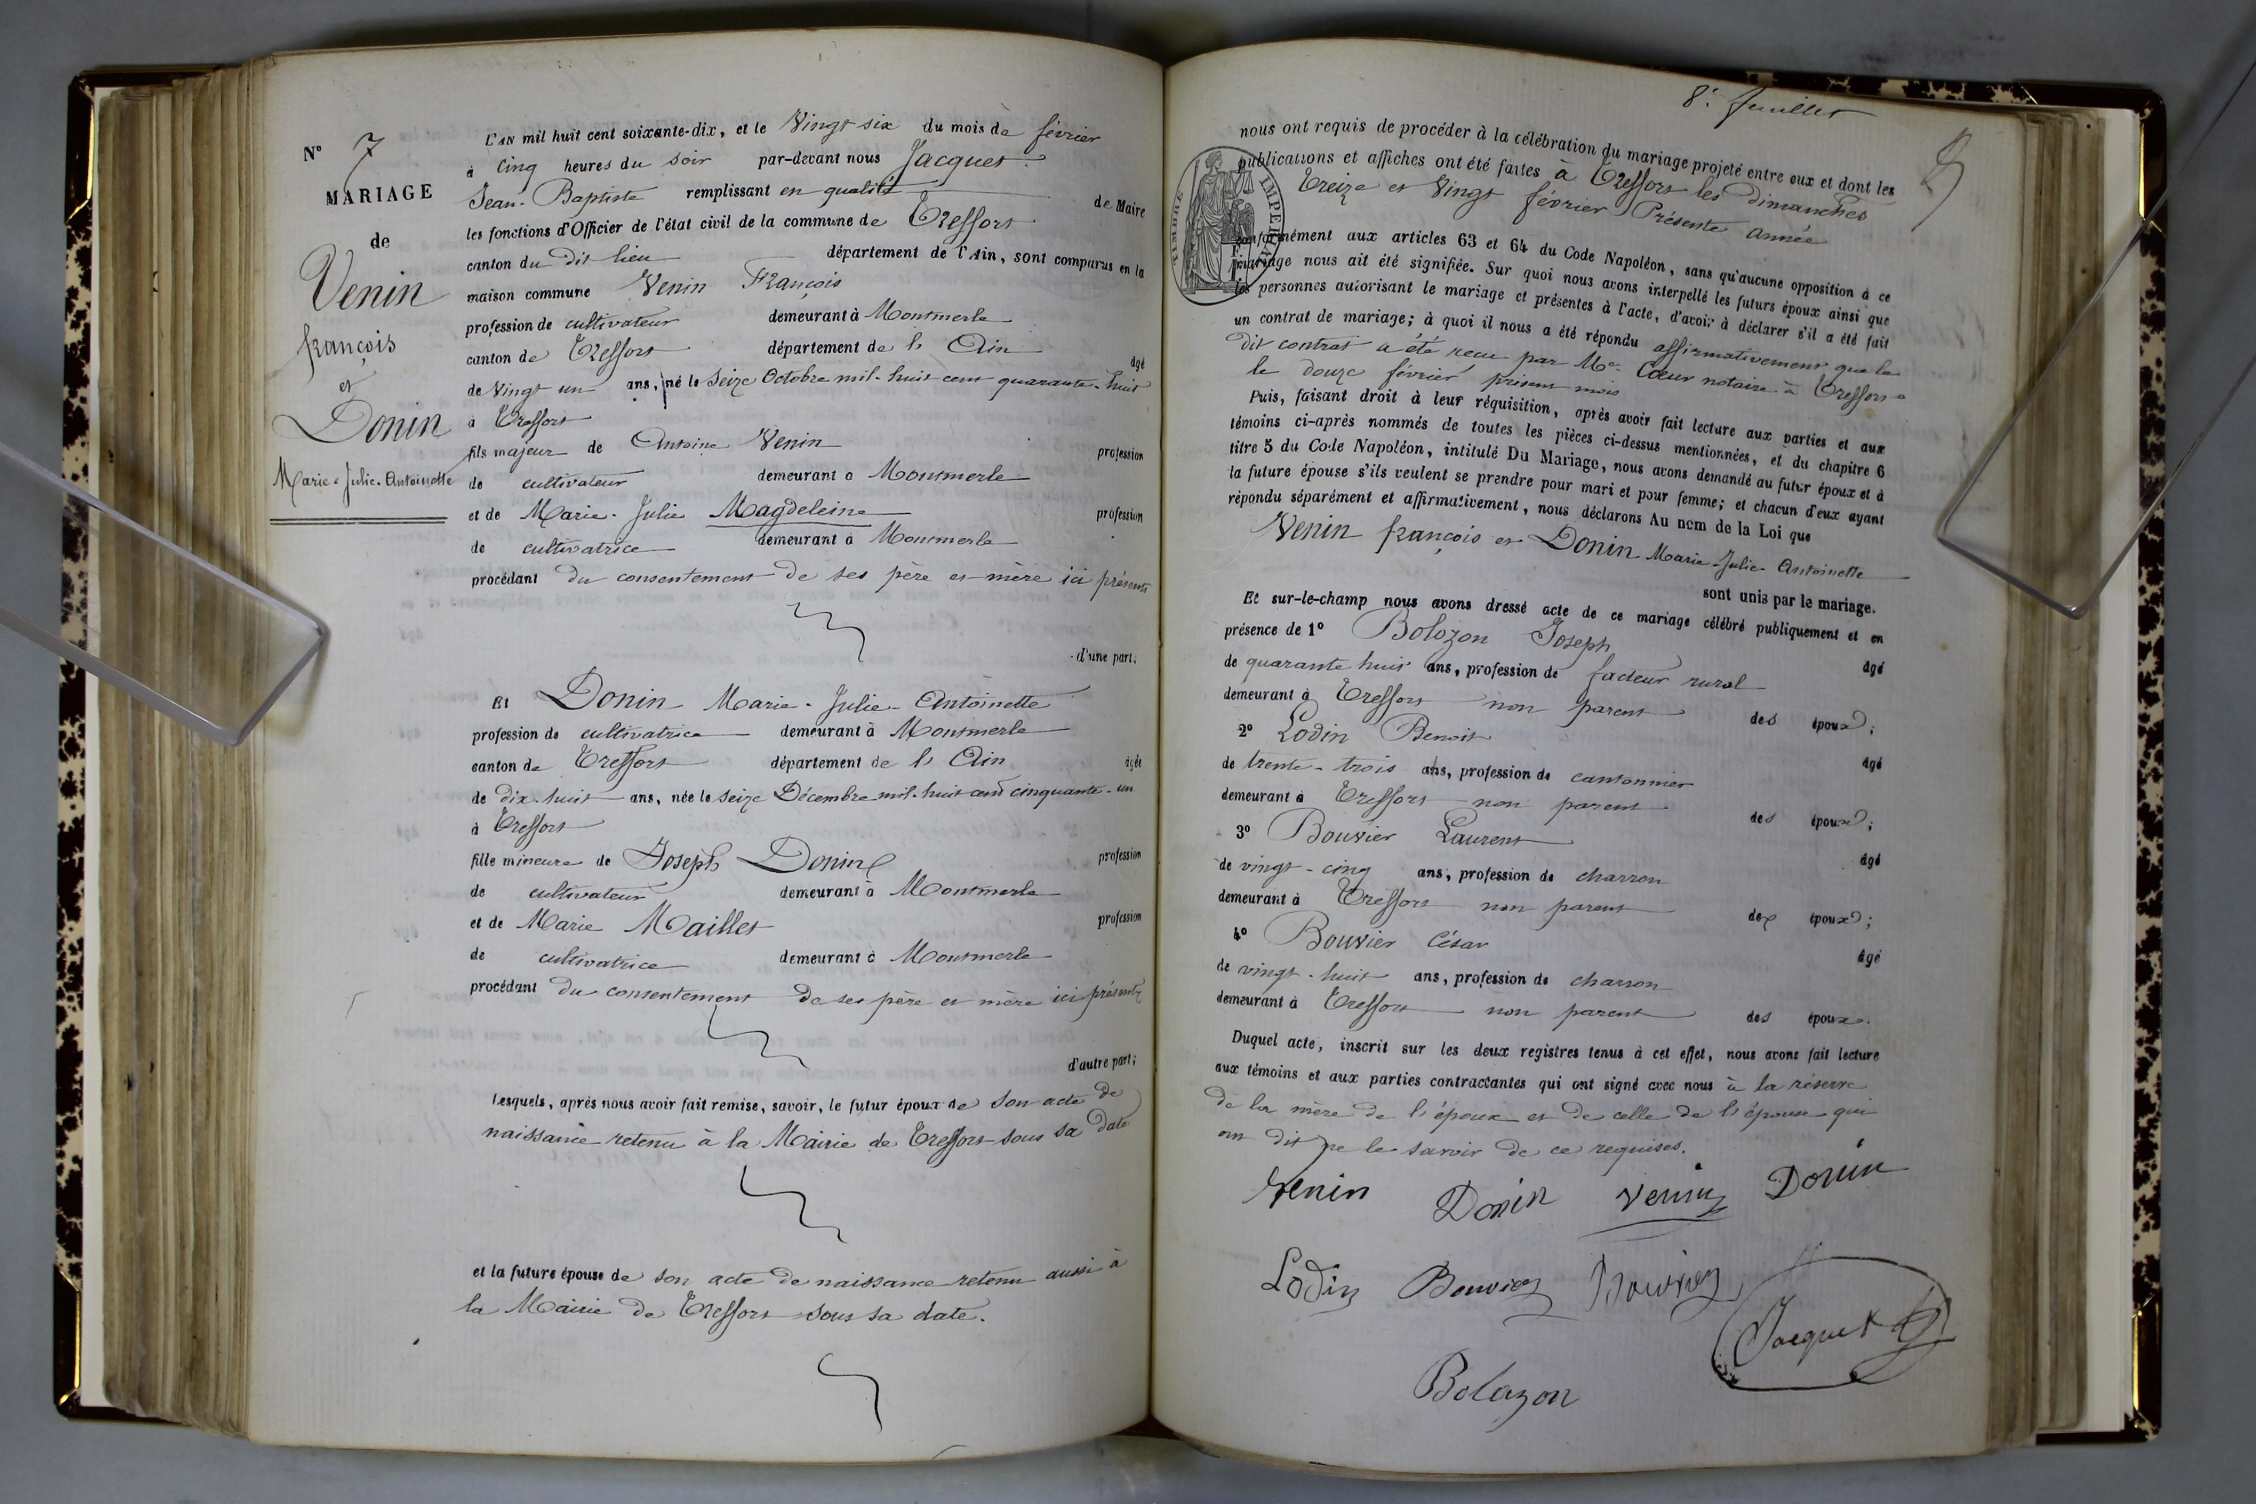 N° 7
MARIAGE
de
Venin
françois
et
Donin
Marie-Julie-Antoinette
L'AN mil huit cent soixante-dix, et le Vingt six du mois de février
à Cinq heures du soir par-devant nous Jacquet
Jean-Baptiste remplissant en qualité de Maire
les fonctions d'Officier de l'état civil de la commune de Treffort
canton du dit lieu département de l'Ain, sont comparus en la
maison commune Venin François
profession de cultivateur demeurant à Montmerle
canton de Treffort département de l'Ain âgé
de Vingt un ans, né le Seize Octobre mil-huit cent quarante-huit
à Treffort
fils majeur de Antoine Venin profession
de cultivateur demeurant à Montmerle
et de Marie-Julie Magdeleine profession
de cultivatrice demeurant à Montmerle
procédant du consentement de ses père et mère ici présents
d'une part;
Et Donin Marie-Julie-Antoinette
profession de cultivatrice demeurant à Montmerle
canton de Treffort département de l'Ain âgée
de dix-huit ans, née le Seize Décembre mil-huit cent cinquante-un
à Treffort
fille mineure de Joseph Donin profession
de cultivateur demeurant à Montmerle
et de Marie Maillet profession
de cultivatrice demeurant à Montmerle
procédant du consentement de ses père et mère ici présents
d'autre part;
Lesquels, après nous avoir fait remise, savoir, le futur époux de son acte de
naissance retenu à la Mairie de Treffort sous sa date
et la future épouse de son acte de naissance retenu aussi à
la Mairie de Treffort sous sa date.
8e feuillet
TIMBRE IMPERIAL
nous ont requis de procéder à la célébration du mariage projeté entre eux et dont les
publications et affiches ont été faites à Treffort les dimanches
Treize et Vingt février Présente année
conformément aux articles 63 et 64 du Code Napoléon, sans qu'aucune opposition à ce
mariage nous ait été signifiée. Sur quoi nous avons interpellé les futurs époux ainsi que
les personnes autorisant le mariage et présentes à l'acte, d'avoir à déclarer s'il a été fait
un contrat de mariage; à quoi il nous a été répondu affirmativement que le
dit contrat a été reçu par Me Cœur notaire à Treffort
le douze février présent mois
Puis, faisant droit à leur réquisition, après avoir fait lecture aux parties et aux
témoins ci-après nommés de toutes les pièces ci-dessus mentionnées, et du chapitre 6
titre 5 du Code Napoléon, intitulé Du Mariage, nous avons demandé au futur époux et à
la future épouse s'ils veulent se prendre pour mari et pour femme; et chacun d'eux ayant
répondu séparément et affirmativement, nous déclarons Au nom de la Loi que
Venin françois et Donin Marie-Julie-Antoinette
sont unis par le mariage.
Et sur-le-champ nous avons dressé acte de ce mariage célébré publiquement et en
présence de 1° Bolozon Joseph âgé
de quarante huit ans, profession de facteur rural
demeurant à Treffort non parent des époux;
2° Lodin Benoit âgé
de trente-trois ans, profession de cantonnier
demeurant à Treffort non parent des époux;
3° Bouvier Laurent âgé
de vingt-cinq ans, profession de charron
demeurant à Treffort non parent des époux;
4° Bouvier César âgé
de vingt-huit ans, profession de charron
demeurant à Treffort non parent des époux.
Duquel acte, inscrit sur les deux registres tenus à cet effet, nous avons fait lecture
aux témoins et aux parties contractantes qui ont signé avec nous à la réserve
de la mère de l'époux et de celle de l'épouse qui
ont dit ne le savoir de ce requises.
Venin Donin Venin Donin
Lodin Bouvier Bouvier
Jacquet
Bolozon